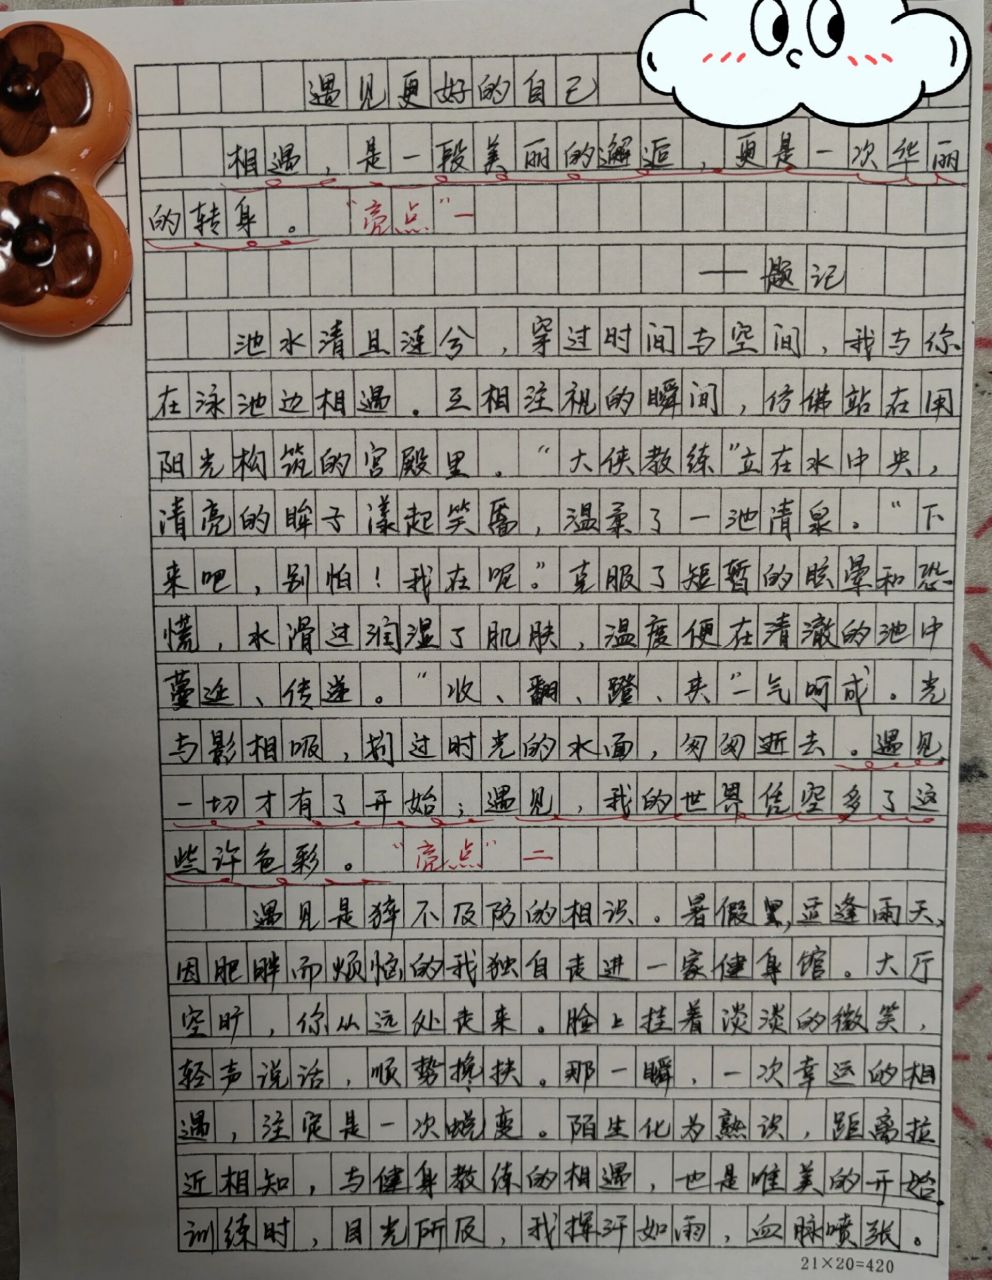 遇见更好的自己
相遇，是一段美丽的邂逅，更是一次华丽
的转身。 “亮点”一
——题记
池水清且涟兮，穿过时间与空间，我与你
在泳池边相遇。互相注视的瞬间，仿佛站在用
阳光构筑的宫殿里。“大侠教练”立在水中央，
清亮的眸子漾起笑靥，温柔了一池清泉。“下
来吧，别怕！我在呢。”克服了短暂的眩晕和恐
慌，水滑过润湿了肌肤，温度便在清澈的池中
蔓延、传递。“收、翻、蹬、夹”一气呵成。光
与影相吸，划过时光的水面，匆匆逝去。遇见，
一切才有了开始；遇见，我的世界凭空多了这
些许色彩。 “亮点”二
遇见是猝不及防的相识。暑假里，适逢雨天，
因肥胖而烦恼的我独自走进一家健身馆。大厅
空旷，你从远处走来。脸上挂着淡淡的微笑，
轻声说话，顺势搀扶。那一瞬，一次幸运的相
遇，注定是一次蜕变。陌生化为熟识，距离拉
近相知，与健身教练的相遇，也是唯美的开始。
训练时，目光所及，我挥汗如雨，血脉喷张。
21×20=420